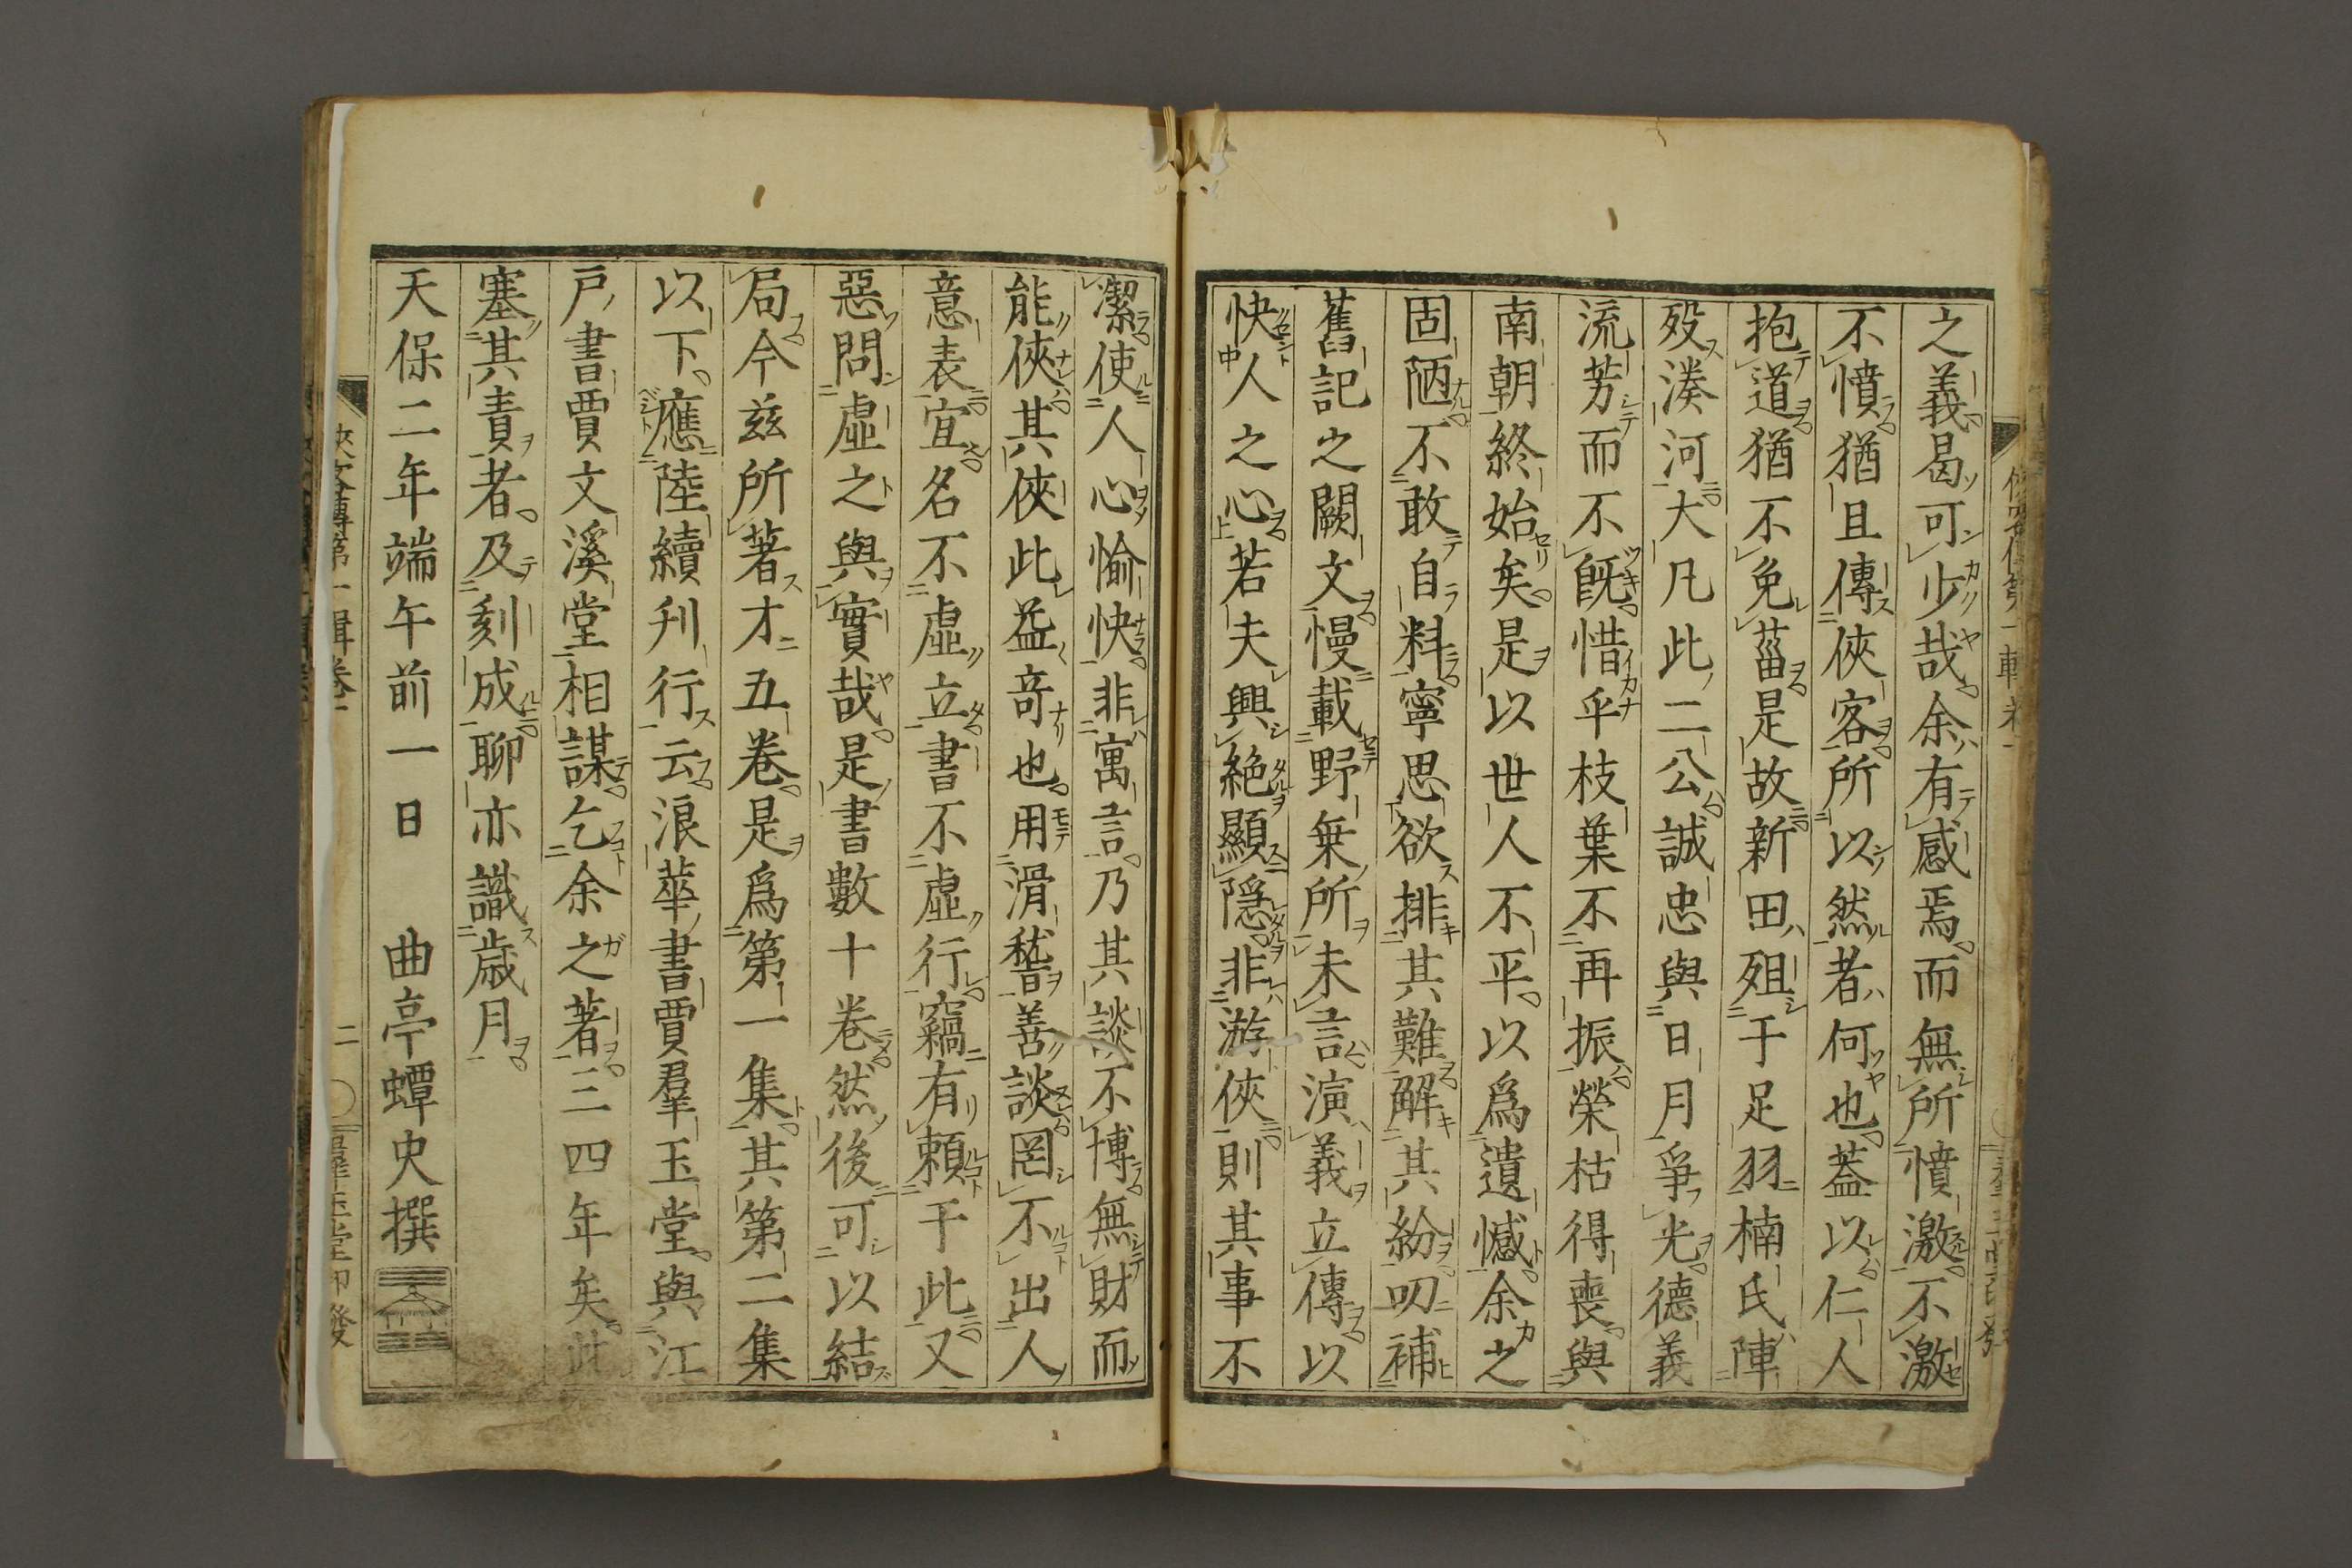 之義曷可少哉余有感焉而無所憤激不激
不憤猶且傳俠客所以然者何也蓋以仁人
抱道猶不免菑是故新田殂于足羽楠氏陣
歿湊河大凡此二公誠忠與日月爭光德義
流芳而不既惜乎枝葉不再振榮枯得喪與
南朝終始矣是以世人不平以爲遺憾余之
固陋不敢自料寧思欲排其難解其紛叨補
舊記之闕文慢載野乗所未言演義立傳以
快人之心若夫興絶顯隠非游俠則其事不
潔使人心愉快非寓言乃其談不博無財而
能俠其俠此益竒也用滑稽善談罔不出人
意表宜名不虛立書不虛行竊有頼于此又
惡問虛之與實哉是書數十卷然後可以結
局今茲所著才五卷是爲第一集其第二集
以下應陸續刋行云浪華書賈羣玉堂與江
戸書賈文溪堂相謀乞余之著三四年矣此
塞其責者及刻成聊亦識歳月
天保二年端午前一日　曲亭蟫史撰
俠客傳第一輯卷一　二　羣玉堂印發